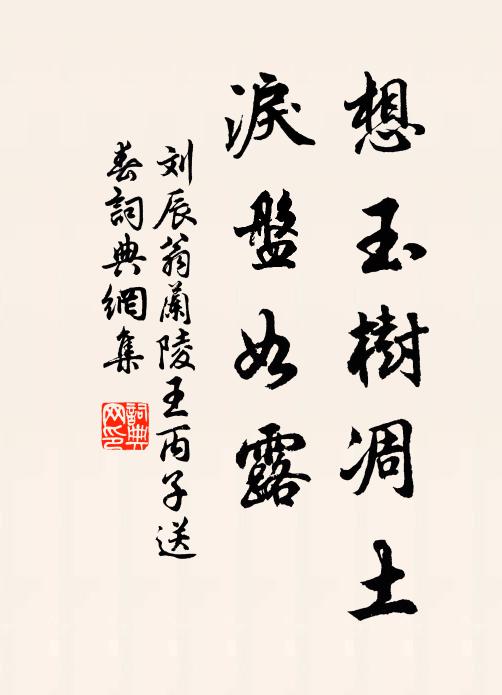 想玉樹凋土
淚盤如露
刘辰翁蘭陵王丙子送
春詞典網集
詞典网印